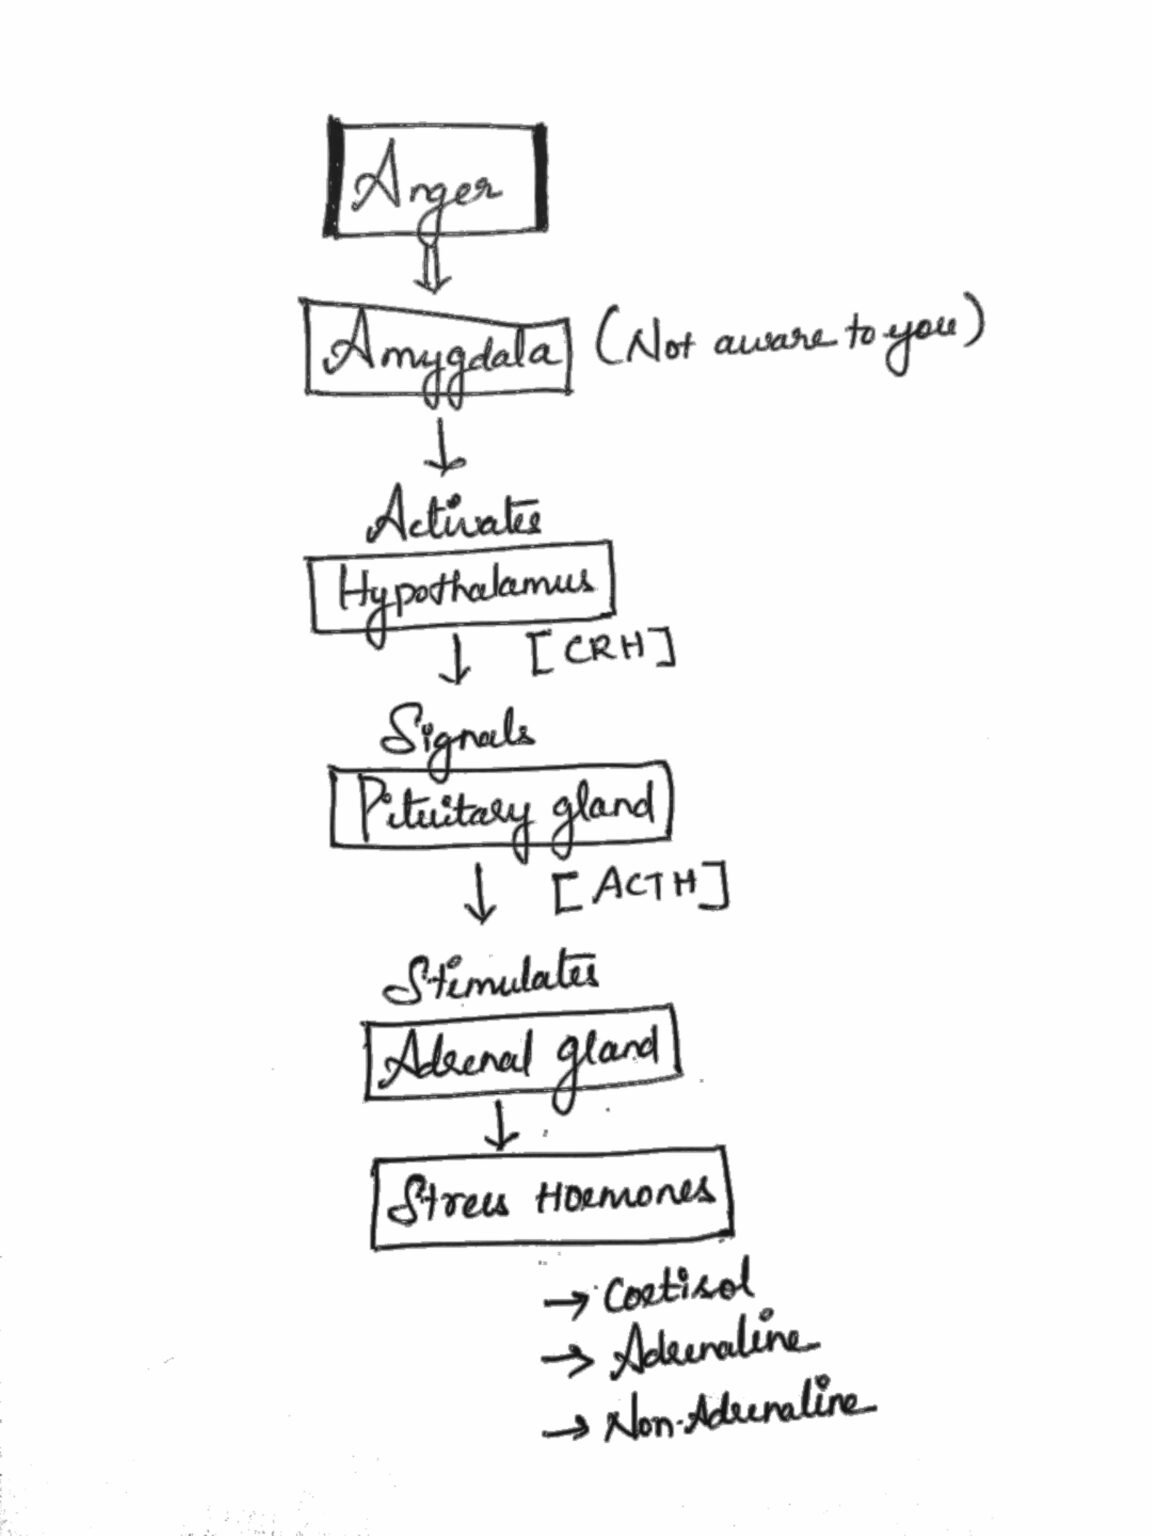 Anger
Amygdala (Not aware to you)
Activates
Hypothalamus
[CRH]
Signals
Pituitary gland
[ACTH]
Stimulates
Adrenal gland
Stress Hormones
→ Cortisol
→ Adrenaline
→ Non-Adrenaline